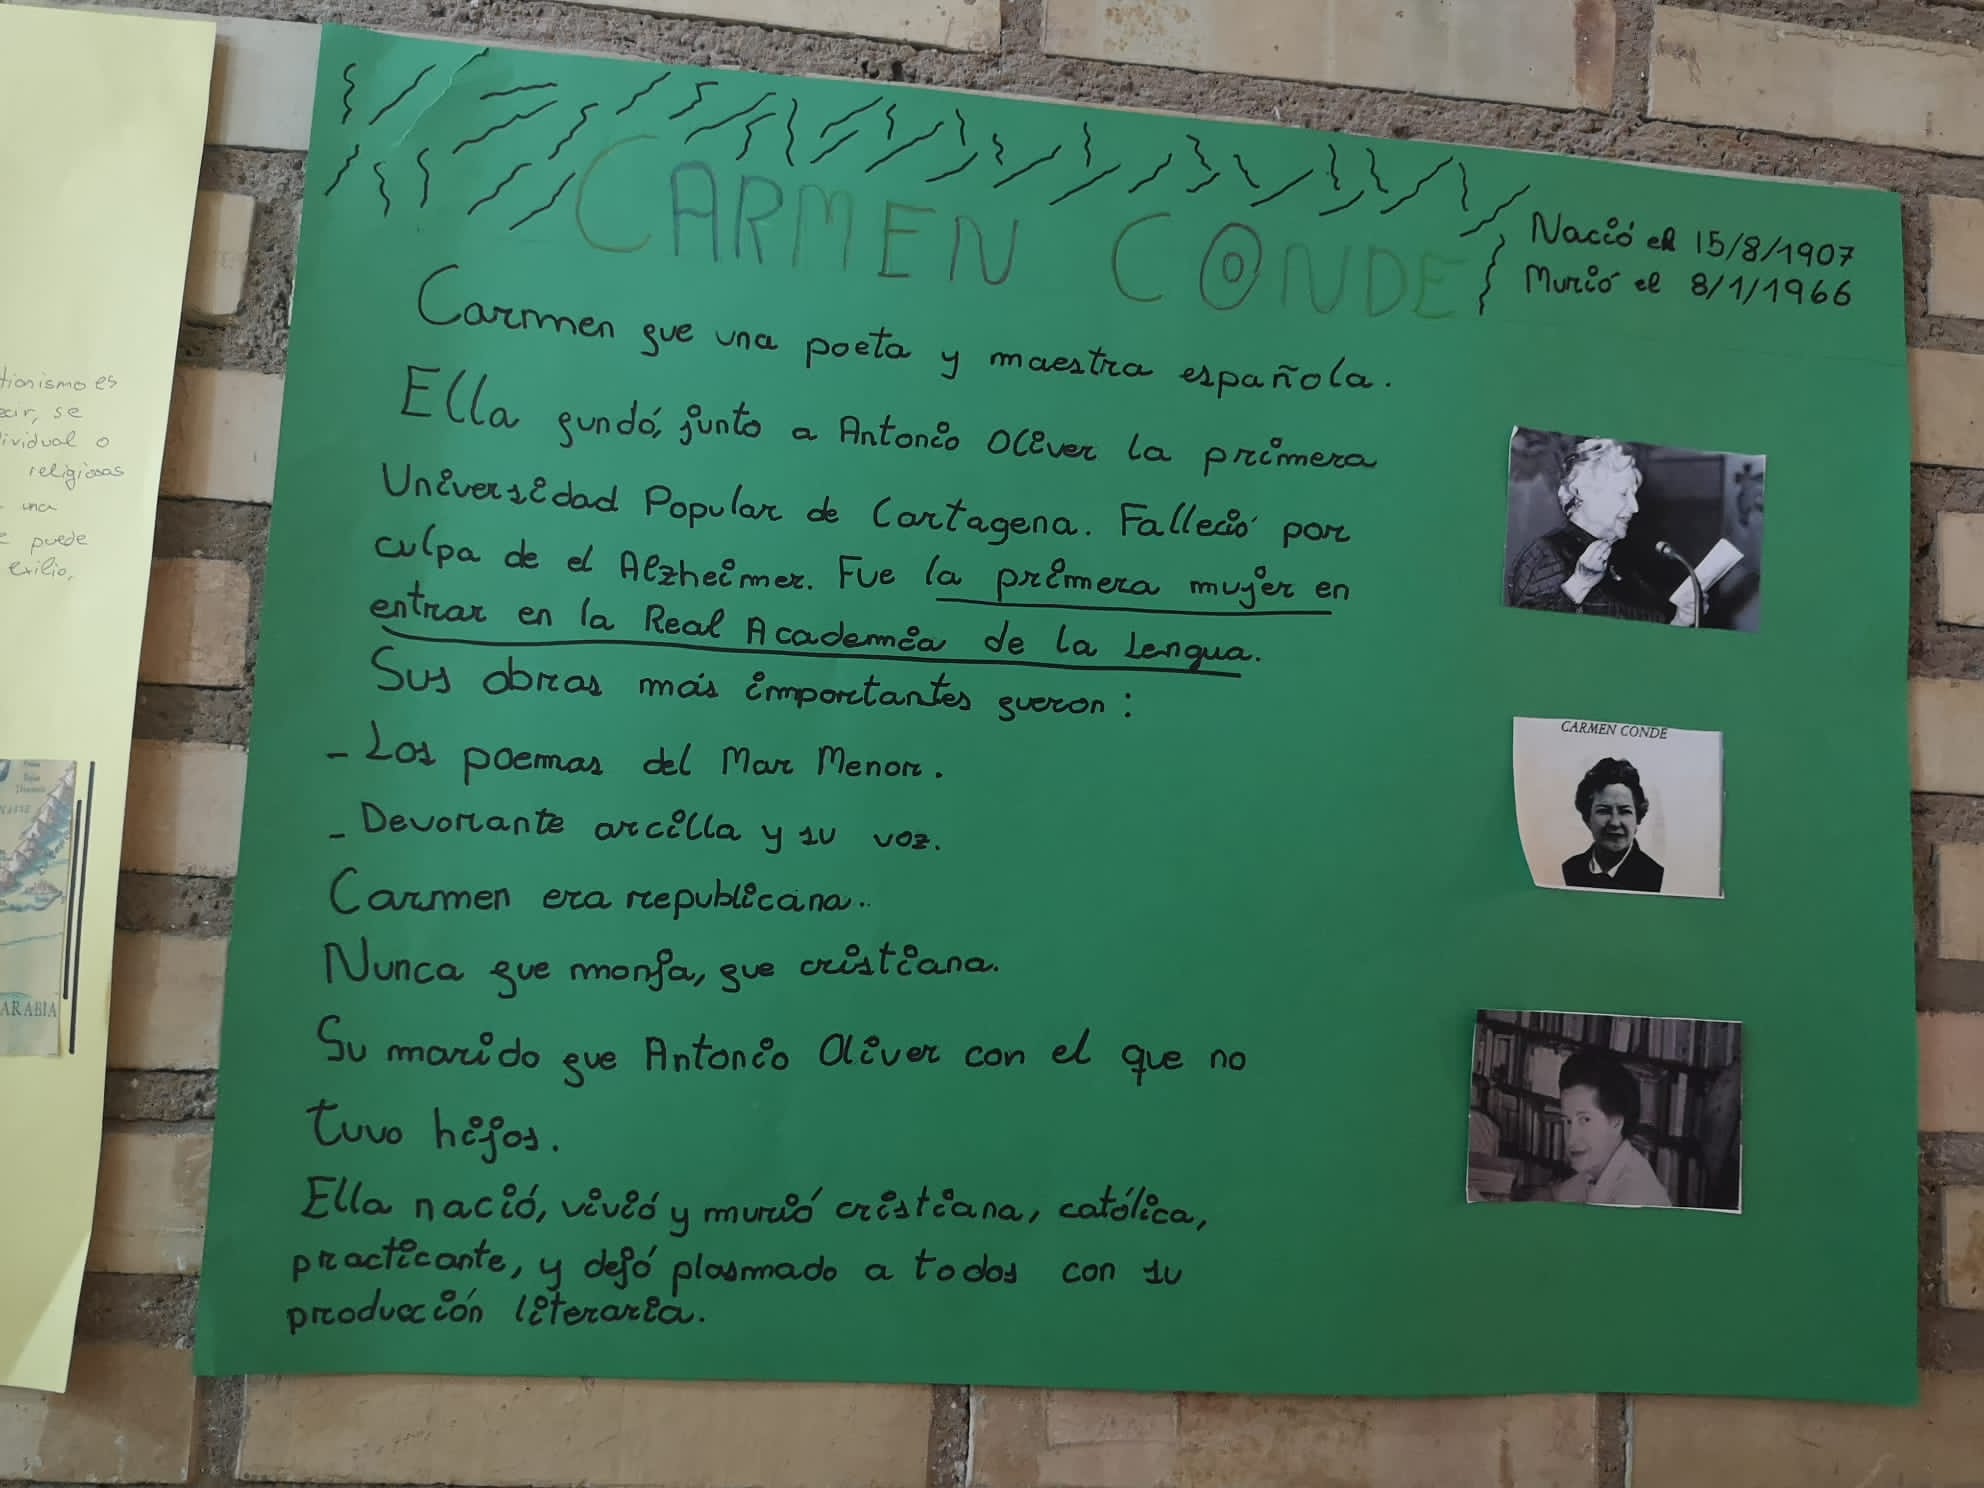 CARMEN CONDE
Nació el 15/8/1907
Murió el 8/1/1966
Carmen fue una poeta y maestra española.
Ella fundó, junto a Antonio Oliver la primera
Universidad Popular de Cartagena. Falleció por
culpa de el Alzheimer. Fue la primera mujer en
entrar en la Real Academia de la Lengua.
Sus obras más importantes fueron:
- Los poemas del Mar Menor.
- Devorante arcilla y su voz.
Carmen era republicana..
Nunca fue monja, fue cristiana.
Su marido fue Antonio Oliver con el que no
tuvo hijos.
Ella nació, vivió y murió cristiana, católica,
practicante, y dejó plasmado a todos con su
producción literaria.
CARMEN CONDE
es
se
o
religiosas
una
puede
exilio,
ARABIA